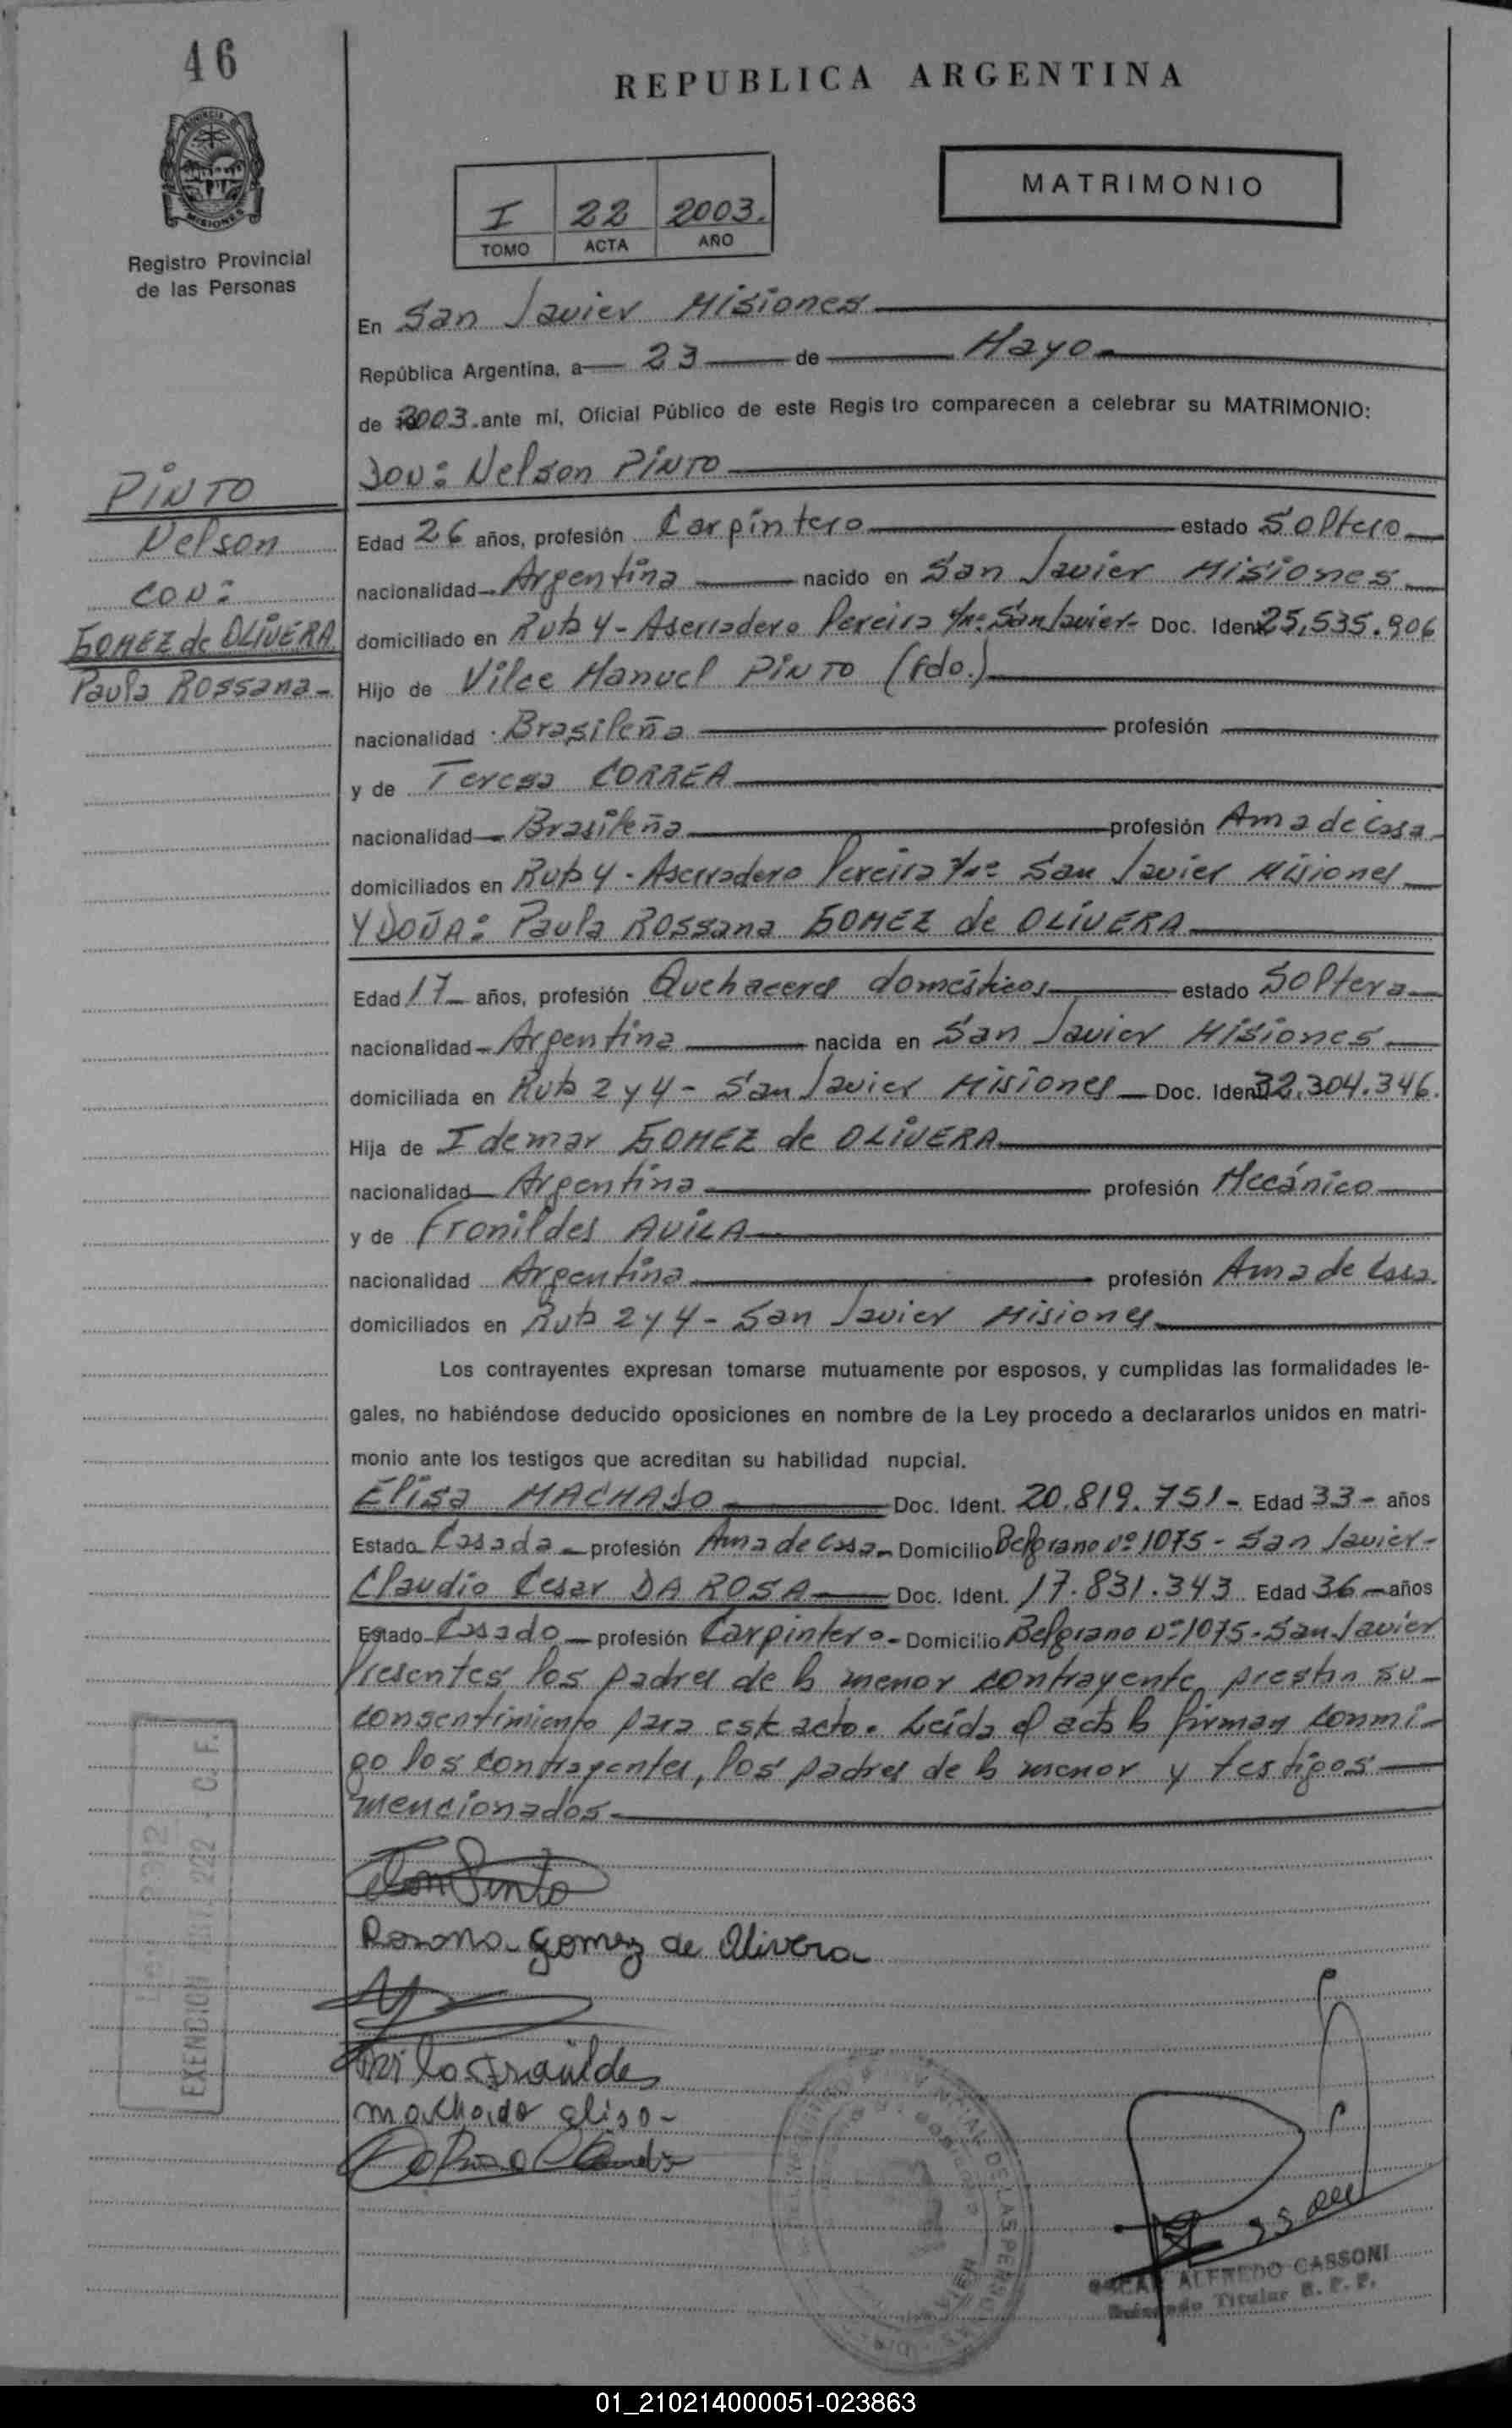 46
REPUBLICA ARGENTINA
PROVINCIA DE
MISIONES
Registro Provincial
de las Personas
MATRIMONIO
I 22 2003.
TOMO ACTA AÑO
En San Javier Misiones
República Argentina, a 23 de Mayo
de 2003. ante mí, Oficial Público de este Regis tro comparecen a celebrar su MATRIMONIO:
DON: Nelson PINTO
PINTO
Nelson
CON:
GOMEZ de OLIVERA
Paula ROSSana-
Edad 26 años, profesión Carpintero estado Soltero
nacionalidad Argentina nacido en San Javier Misiones
domiciliado en Ruta 4 - Aserradero Pereira San Javier- Doc. Ident. 25,535.906
Hijo de Vilce Manuel PINTO (fdo.)
nacionalidad Brasileña profesión
y de Teresa CORREA
nacionalidad Brasileña profesión Ama de Casa
domiciliados en Ruta 4 - Aserradero Pereira San Javier Misiones
Y DOÑA: Paula ROSSana GOMEZ de OLIVERA
Edad 17 años, profesión Quehaceres domésticos estado Soltera
nacionalidad Argentina nacida en San Javier Misiones
domiciliada en Ruta 2 y 4 - San Javier Misiones Doc. Ident. 32.304.346.
Hija de Idemar GOMEZ de OLIVERA
nacionalidad Argentina profesión Mecánico
y de Fronildes AVILA
nacionalidad Argentina profesión Ama de Casa.
domiciliados en Ruta 2 y 4 - San Javier Misiones
Los contrayentes expresan tomarse mutuamente por esposos, y cumplidas las formalidades le-
gales, no habiéndose deducido oposiciones en nombre de la Ley procedo a declararlos unidos en matri-
monio ante los testigos que acreditan su habilidad nupcial.
Elisa MACHADO Doc. Ident. 20.819.751- Edad 33- años
Estado Casada profesión Ama de Casa Domicilio Belgrano Nº 1075 - San Javier-
Claudio Cesar DA ROSA Doc. Ident. 17.831.343 Edad 36 años
Estado Casado profesión Carpintero- Domicilio Belgrano Nº 1075 - San Javier
Presentes los padres de la menor contrayente prestan su
consentimiento para este acto. Leída el acta la firman conmi-
go los contrayentes, los padres de la menor y testigos
mencionados
Pinto
Rosana gomez de Olivera
machado elisa-
EXENCION
ALFREDO CASSONI
Titular R. P. P.
01_210214000051-023863